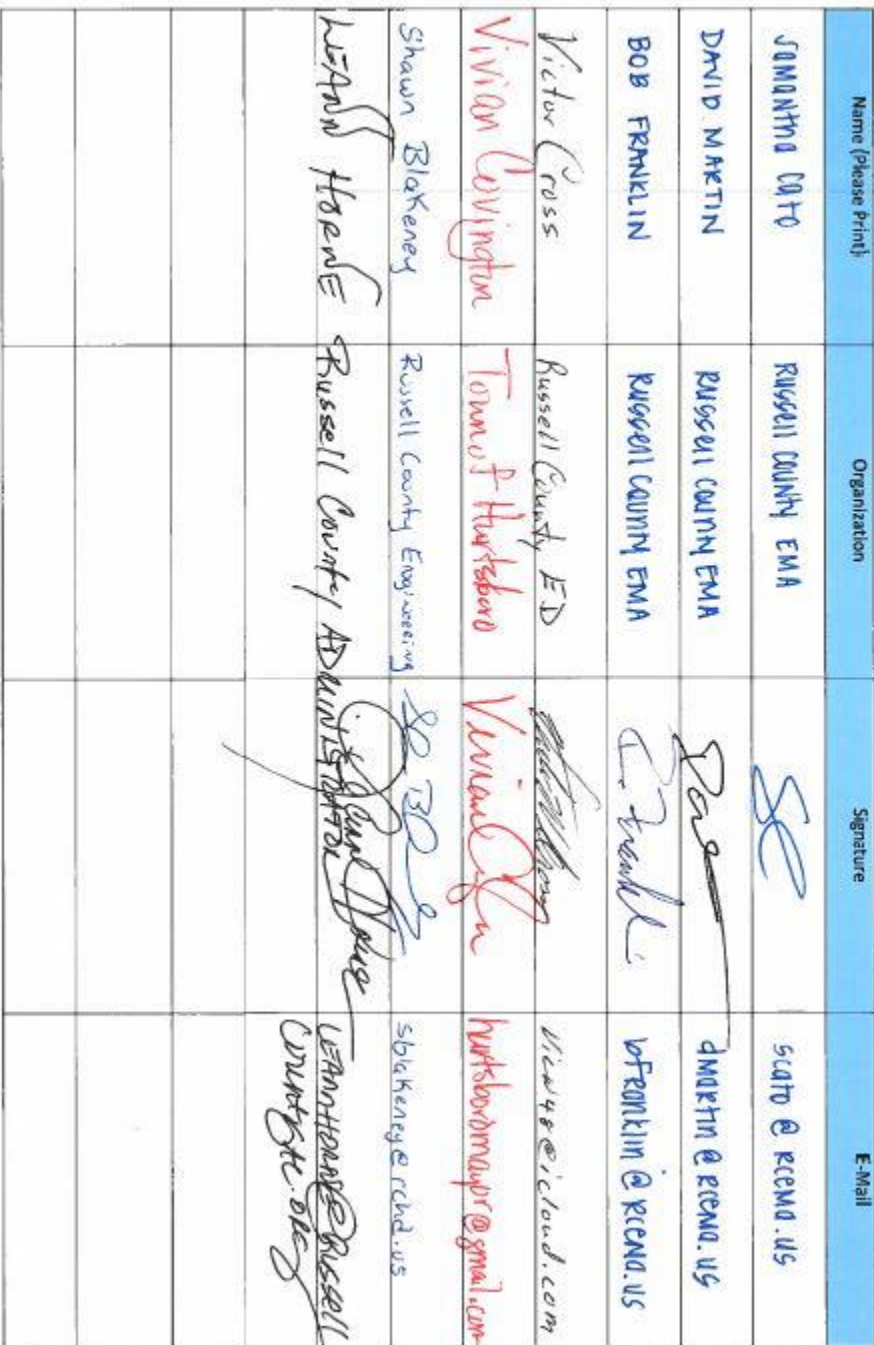 Name (Please Print) Organization Signature E-Mail
Samantha Cato Russell County EMA SC scato@rcema.us
DAVID MARTIN Russell County EMA dmartin@rcema.us
BOB FRANKLIN Russell County EMA B. Frankl bfranklin@rcema.us
Victor Cross Russell County ED @icloud.com
Vivian Covington Town of Hurtsboro Vivian hurtsboromayor@gmail.com
Shawn Blakeney Russell County Engineering sblakeney@rchd.us
LEANN HORNE Russell County ADMINISTRATOR LeAnn Horne LEANNHORNE@RUSSELL
COUNTYAL.ORG